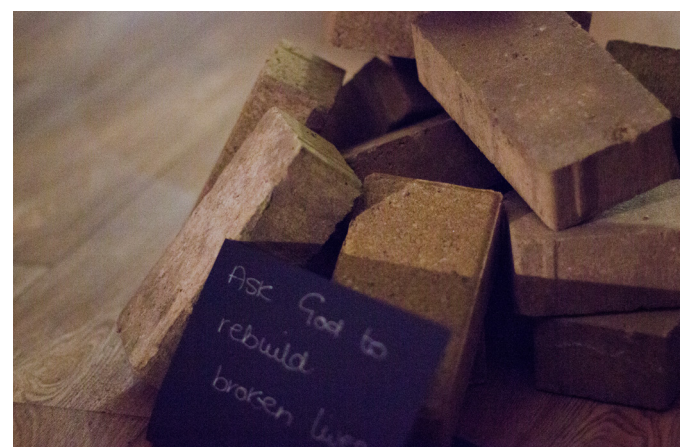 Ask God to
rebuild
broken lives